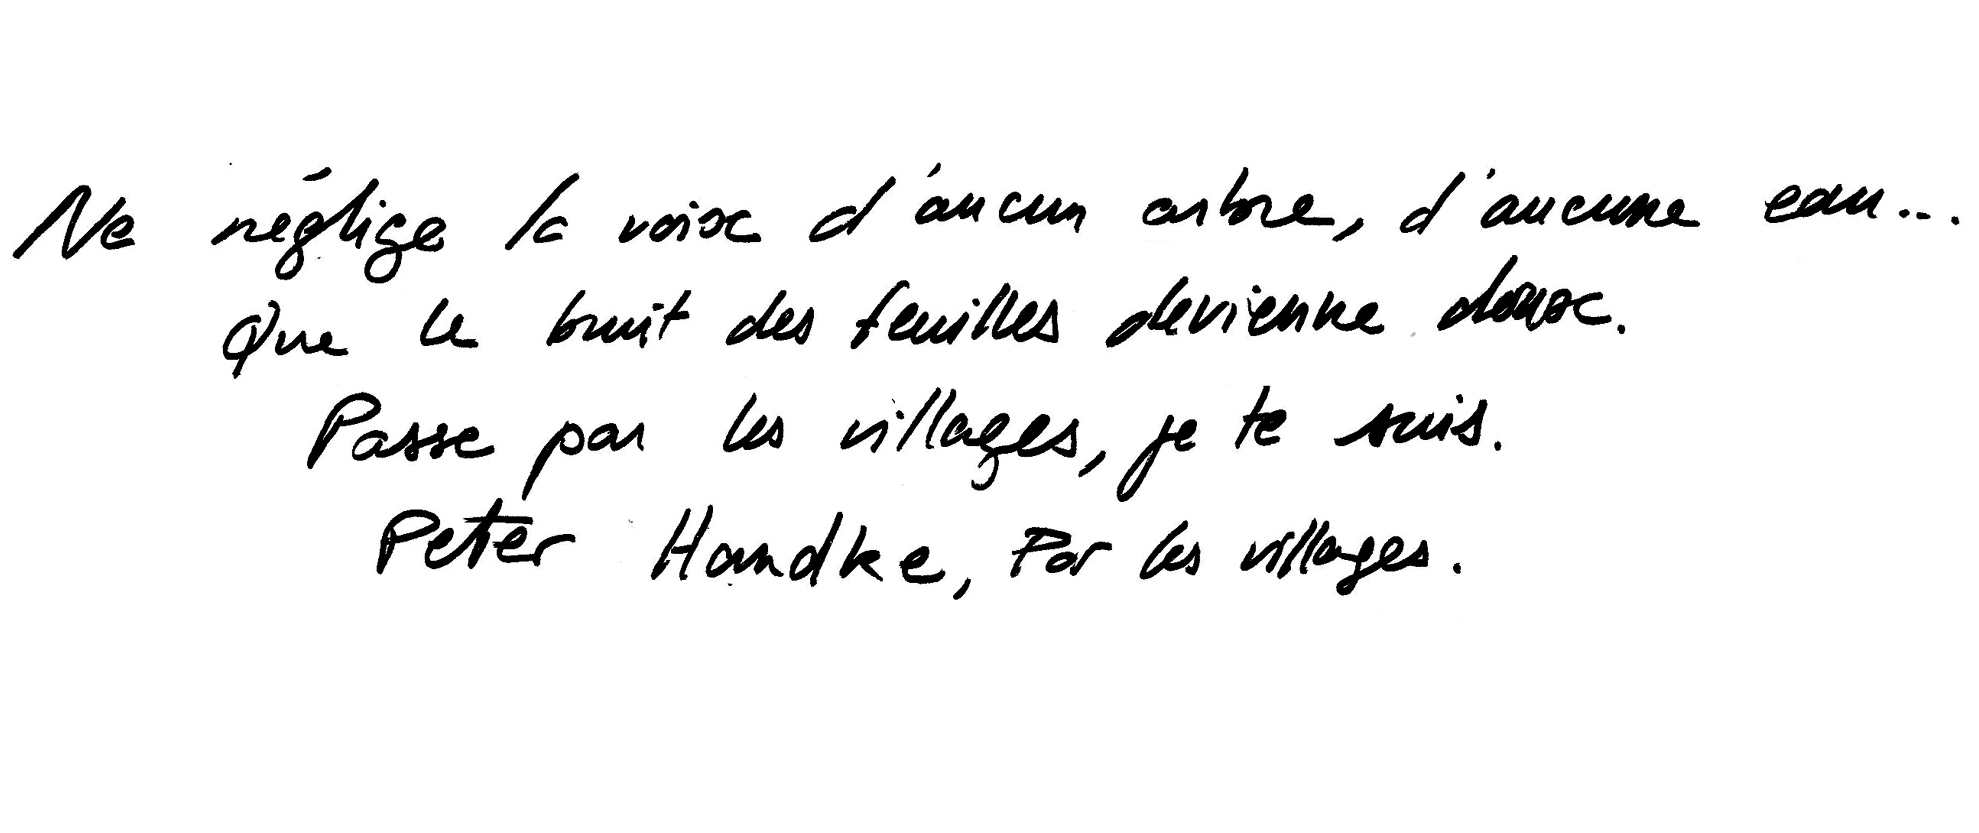 Ne néglige la voix d'aucun arbre, d'aucune eau...
Que le bruit des feuilles devienne doux.
Passe par les villages, je te suis.
Peter Handke, Par les villages.